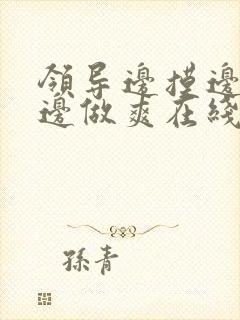 領导邊摸邊
邊做爽在綫
孫青